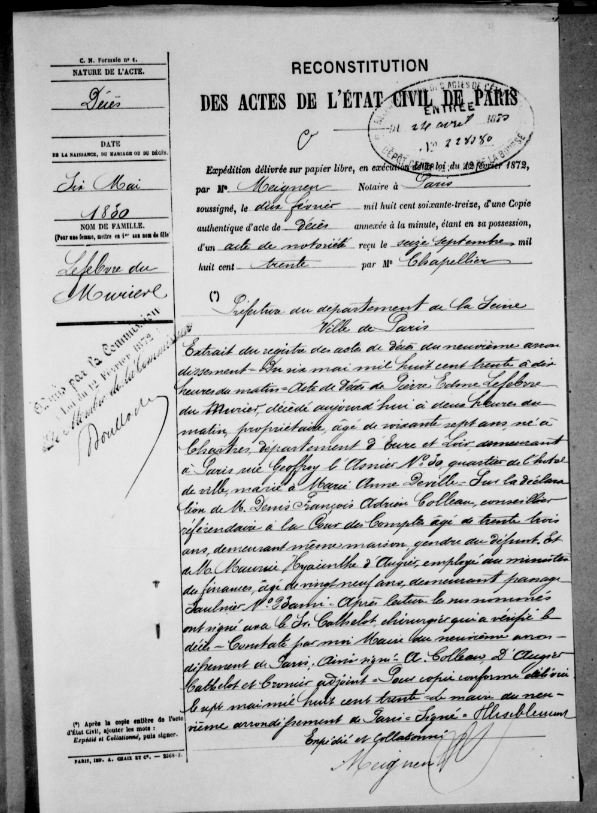 C. N. Formule nº 1.
NATURE DE L'ACTE.
Décès
DATE
DE LA NAISSANCE, DU MARIAGE OU DU DÉCÈS.
Six Mai
1830
NOM DE FAMILLE.
(Pour une femme, mettre en 1er son nom de fille)
Lefebvre du
Murier
Admis par la Commission
Loi du 12 Février 1872
Le Membre de la Commission
RECONSTITUTION
DES ACTES DE L'ÉTAT CIVIL DE PARIS
ENTRÉE
DU 24 avril 1873
Expédition délivrée sur papier libre, en exécution de la loi du 12 février 1872,
par Me Meignen Notaire à Paris
soussigné, le dix février mil huit cent soixante-treize, d'une Copie
authentique d'acte de décès annexée à la minute, étant en sa possession,
d'un acte de notoriété reçu le seize septembre mil
huit cent trente par Me Chapellier
(*)
Préfecture du département de la Seine
Ville de Paris
Extrait du registre des actes de décès du neuvième arron
dissement - Du six mai mil huit cent trente à dix
heures du matin - Acte de décès de Pierre Lefebvre
du Murier, décédé aujourd'hui à deux heures du
matin, propriétaire, âgé de soixante sept ans né à
Chartres, département d'Eure et Loir, demeurant
à Paris rue Geoffroy l'Asnier No 30, quartier de l'hotel
de ville, marié à Marie Anne Deville - Sur la déclara
tion de M. Denis François Adrien Colleau, conseiller
référendaire à la Cour des Comptes âgé de trente trois
ans, demeurant même maison, gendre du défunt. Et
de M. Hyacinthe d'Augier, employé au ministère
des finances, âgé de vingt neuf ans, demeurant passage
Saulnier No - Après lecture les susnommés
ont signé avec le Sr. Cathelot, chirurgien qui a vérifié le
décès - Constaté par moi Maire du neuvième arron-
dissement de Paris. Ainsi signé: A. Colleau D'Augier
Cathelot et Cronier adjoint - Pour copie conforme délivrée
le sept mai mil huit cent trente - Le maire du neu-
vième arrondissement de Paris - Signé -
Expédié et Collationné
Meignen
(*) Après la copie entière de l'acte
d'État Civil, ajouter les mots :
Expédié et Collationné, puis signer.
PARIS, IMP. A. CHAIX ET Cie. - 2568-3.